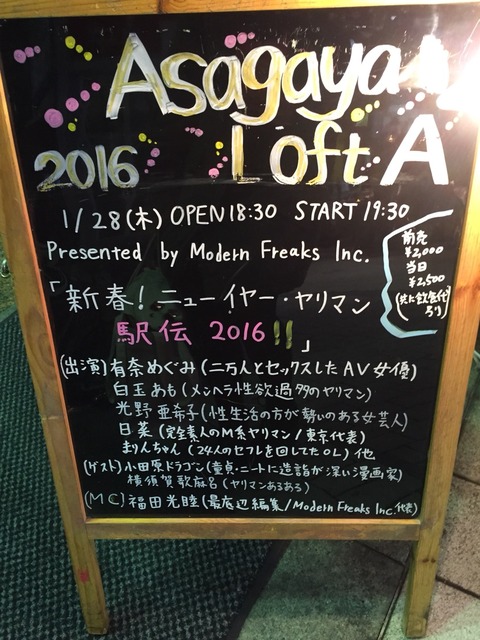 Asagaya
2016 Loft A
1/28(木) OPEN18:30 START 19:30
Presented by Modern Freaks Inc.
前売
¥2,000
当日
¥2,500
(共に飲食代
別)
「新春!ニューイヤー・ヤリマン
駅伝 2016!!」
(出演)有奈めぐみ(二万人とセックスしたAV女優)
白玉あも(メンヘラ性欲過多のヤリマン)
光野亜希子(性生活の方が勢いのある女芸人)
日菜(完全素人のM系ヤリマン/東京代表)
まりんちゃん(24人のセフレを回してたOL)他
(ゲスト)小田原ドラゴン(童貞・ニートに造詣が深い漫画家)
横須賀歌麻呂(ヤリマンあるある)
(MC)福田光睦(最底辺編集/Modern Freaks Inc.代表)